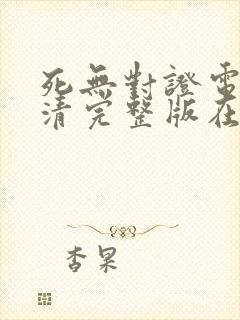 死無對證電
清完整版在
杏果